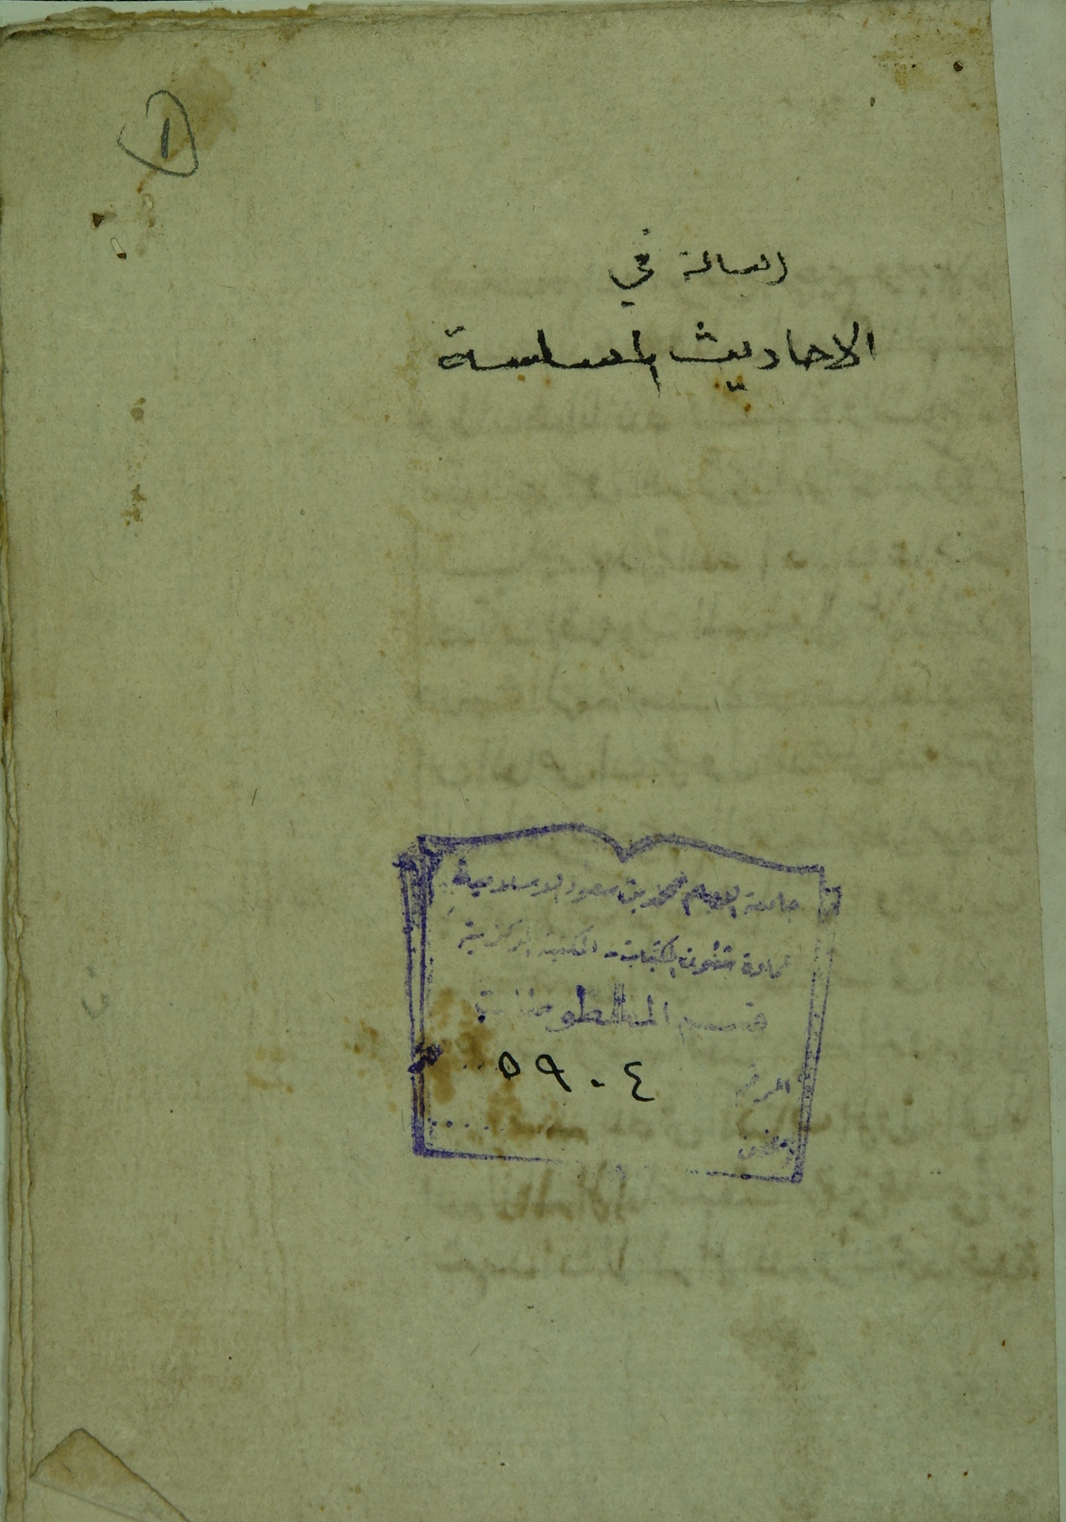 ١
رسالة في
الاحاديث المسلسة
جامعة الإمام محمد بن سعود الإسلامية
عمادة شئون المكتبات - المكتبة المركزية
قسم المخطوطات
الرقم ٥٩٠٤